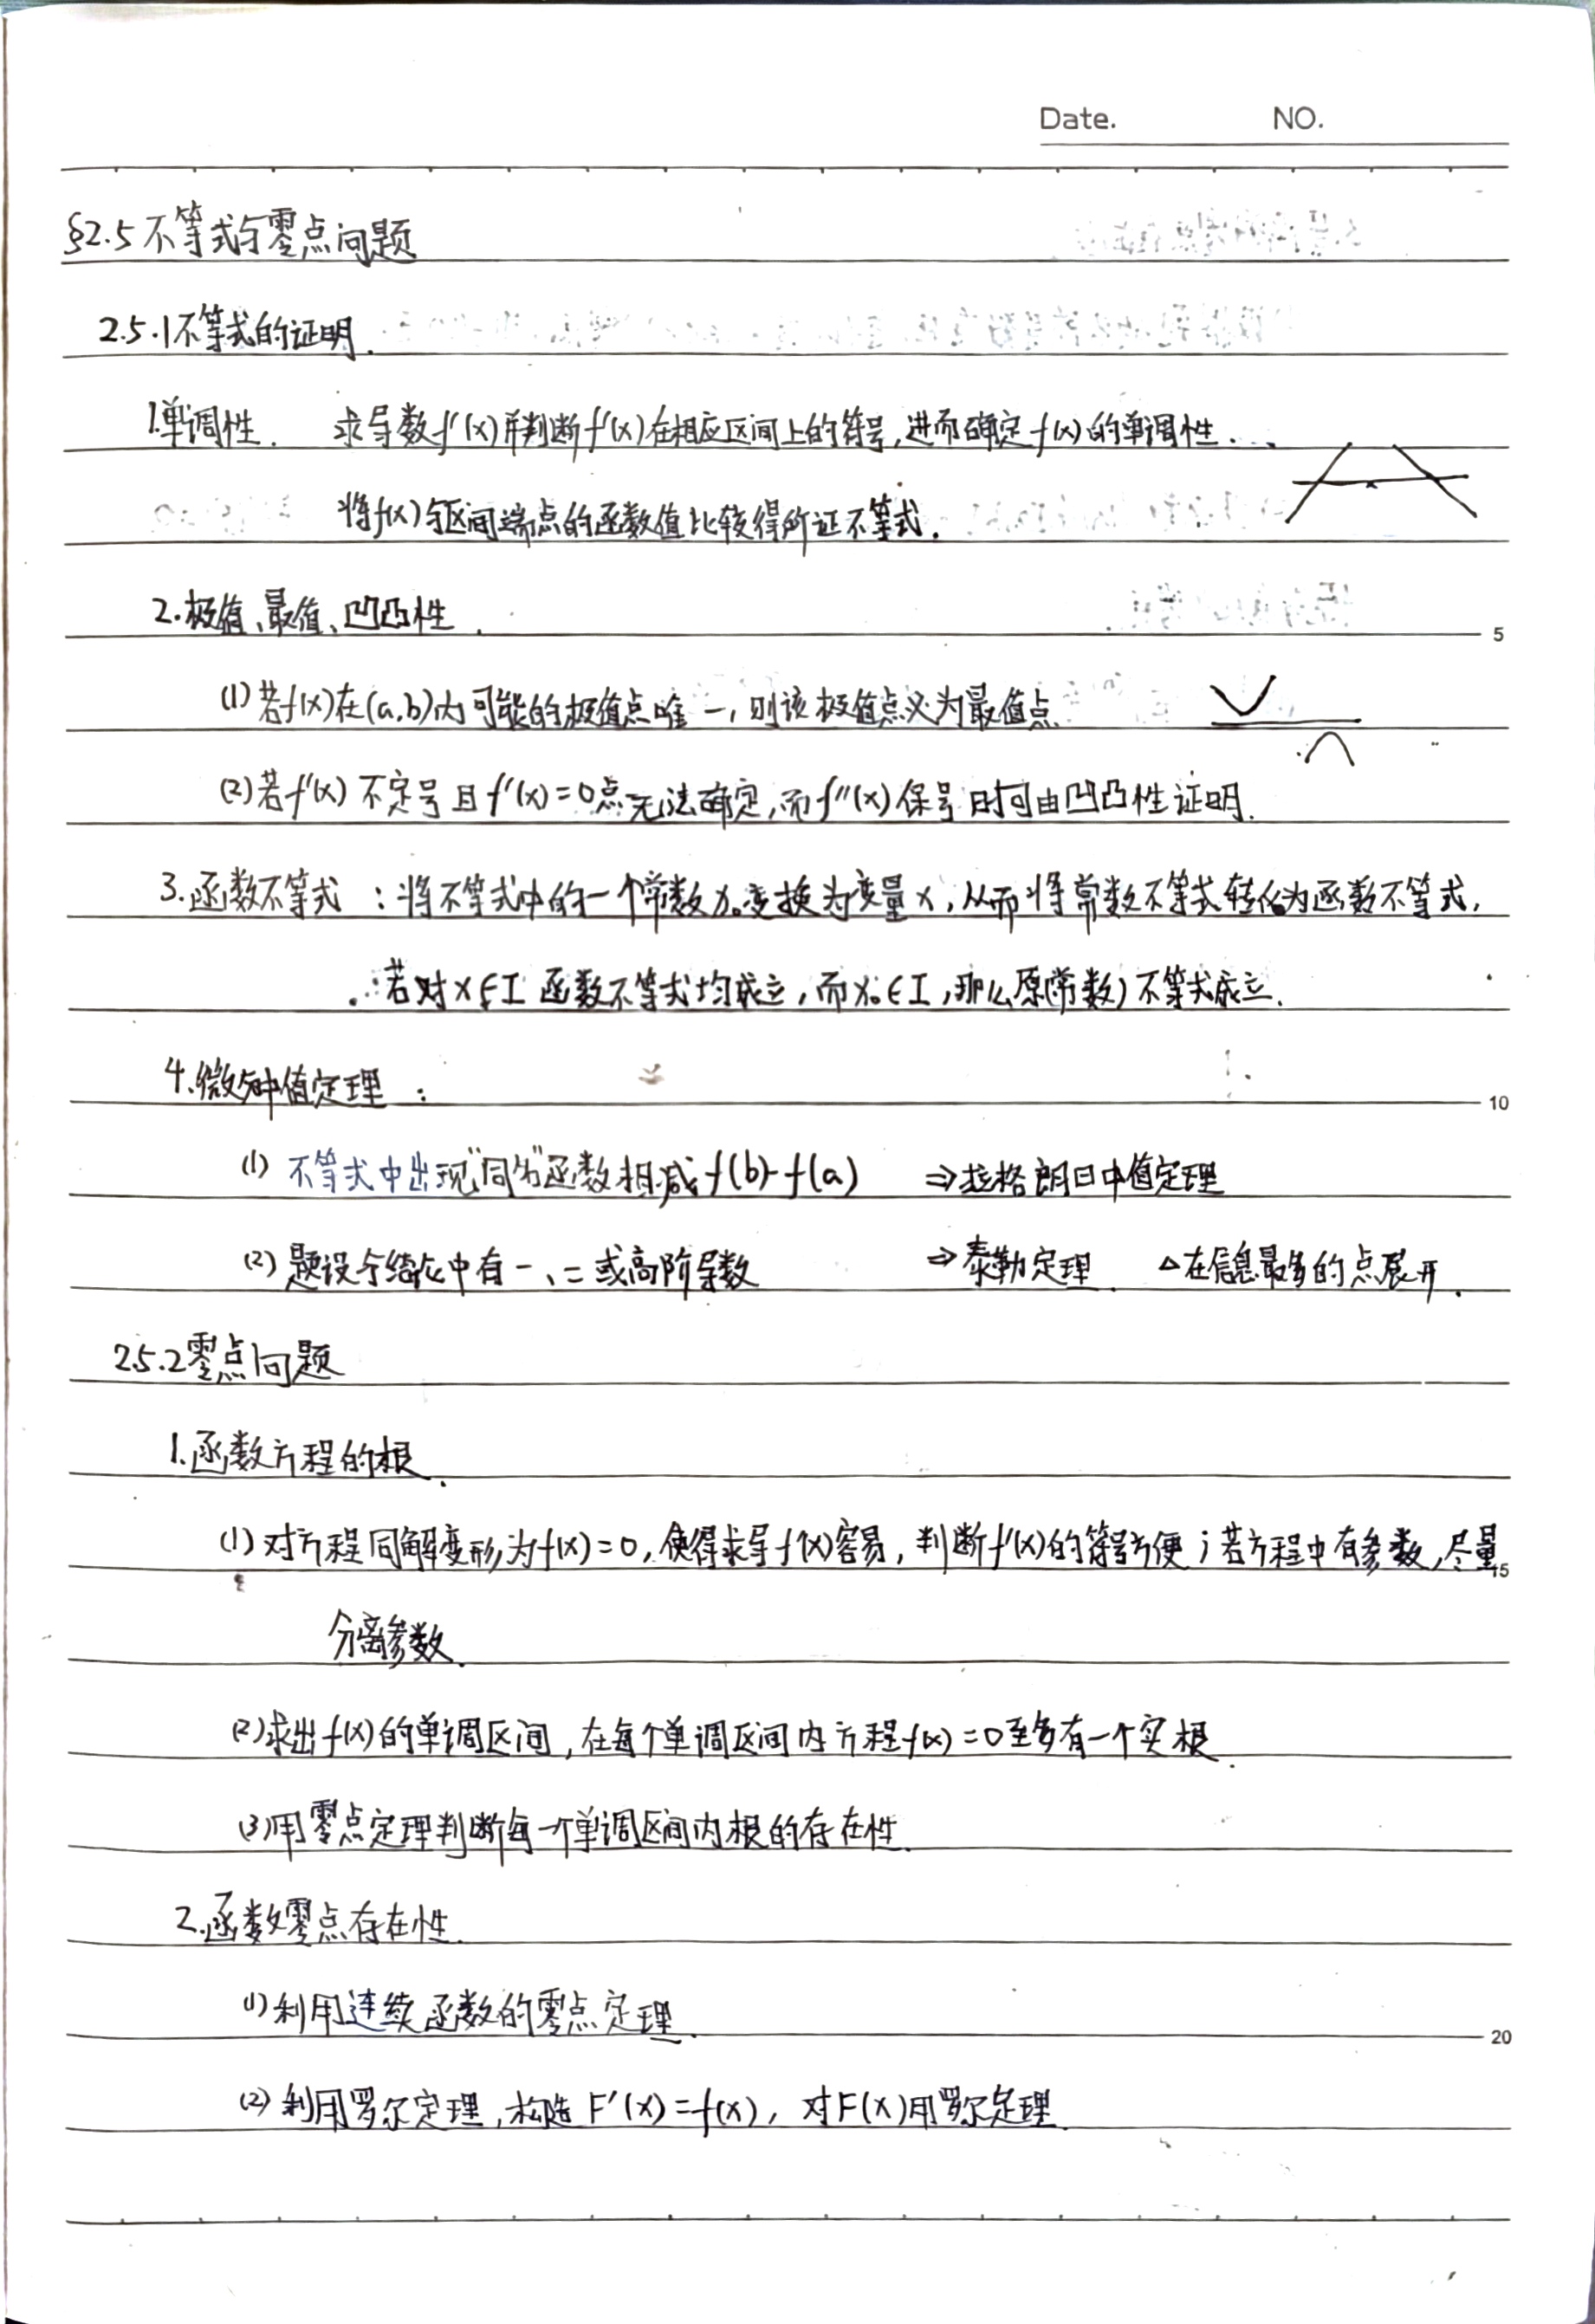 Date. NO.
§2.5 不等式与零点问题
2.5.1 不等式的证明.
1.单调性. 求导数f'(x)并判断f'(x)在相应区间上的符号,进而确定f(x)的单调性.
将f(x)与区间端点的函数值比较得所证不等式.
2.极值、最值、凹凸性.
5
(1) 若f(x)在(a,b)内可能的极值点唯一,则该极值点必为最值点
(2) 若f'(x)不定号且f'(x)=0点无法确定,而f''(x)保号时可由凹凸性证明.
3.函数不等式:将不等式中的一个常数x₀变换为变量x,从而将常数不等式转化为函数不等式,
若对x∈I函数不等式均成立,而x₀∈I,那么原(常数)不等式成立.
4.微分中值定理:
10
(1) 不等式中出现"同名"函数相减f(b)-f(a) ⇒拉格朗日中值定理
(2) 题设与结论中有一、二或高阶导数 ⇒泰勒定理. △在信息最多的点展开.
2.5.2 零点问题
1.函数方程的根.
(1) 对方程同解变形为f(x)=0,使得求导f'(x)容易,判断f'(x)的符号方便;若方程中有参数,尽量
15
分离参数.
(2) 求出f(x)的单调区间,在每个单调区间内方程f(x)=0至多有一个实根.
(3) 用零点定理判断每一个单调区间内根的存在性.
2.函数零点存在性.
(1) 利用连续函数的零点定理.
20
(2) 利用罗尔定理,构造F'(x)=f(x),对F(x)用罗尔定理.